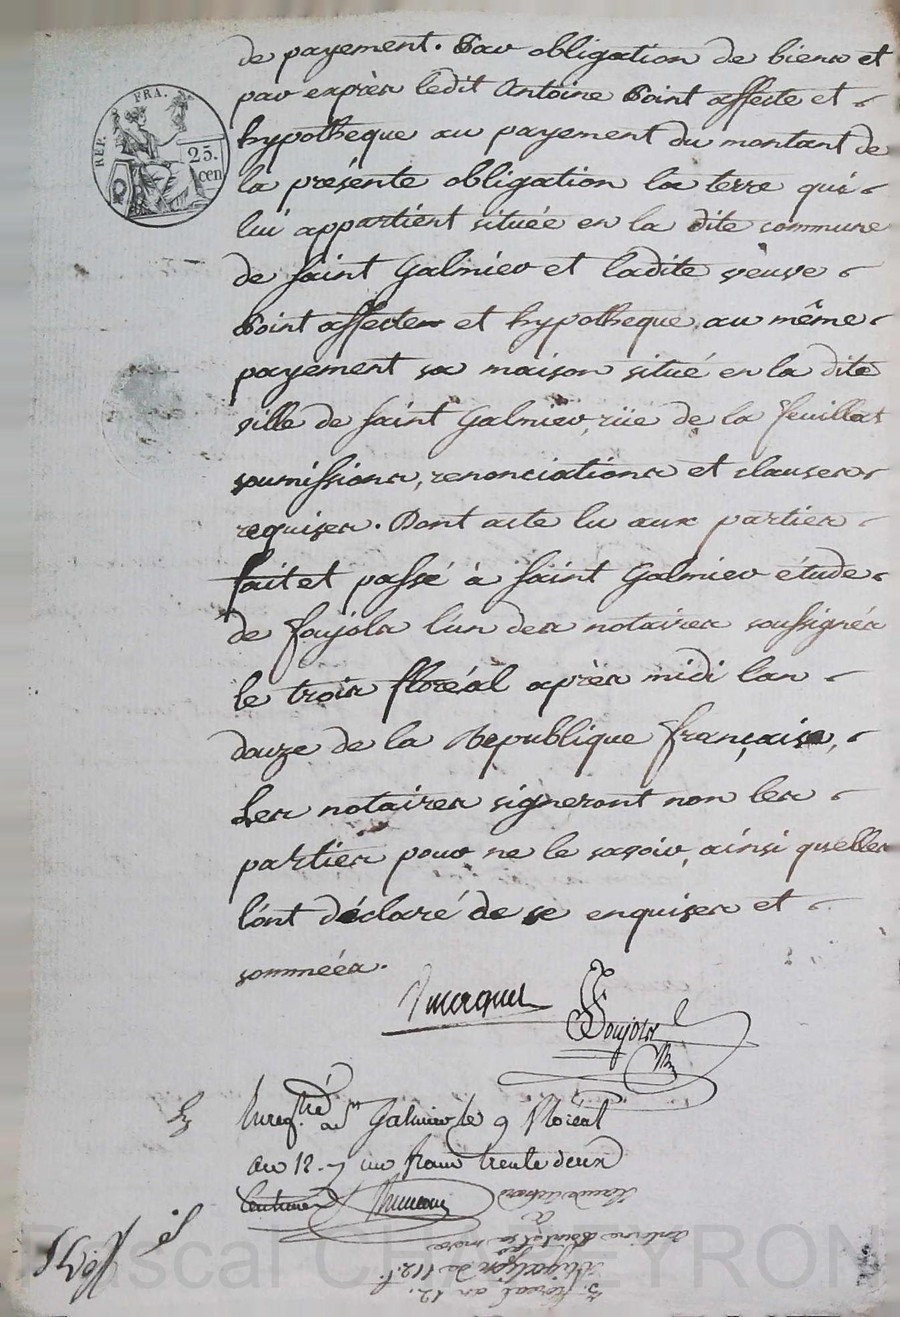 de payement. Par obligation de biens et
par exprès ledit Antoine Point affecte et
hypotheque au payement du montant de
la présente obligation la terre qui
lui appartient située en la dite commune
de Saint Galmier et ladite veuve
Point affecte et hypotheque au même
payement sa maison situé en la dite
ville de Saint Galmier, rüe de la feuillat
soumissions, renonciations et clauses
requises. Dont acte lu aux parties
fait et passé à Saint Galmier étude
de Foujols l'un des notaires soussignés
le trois floréal après midi l'an
douze de la Republique française,
Les notaires signeront non les
parties pour ne le savoir, ainsi quelles
l'ont déclaré de ce enquises et
sommées.
Foujols
Enregtré à St Galmier le 9 floréal
an 12. un franc trente deux
Centimes
REP. FRA.
25.
cen
3. floreal an 12.
obligation de 112 f.
Antoine Point et sa mere
à
Pascal CHAPEYRON